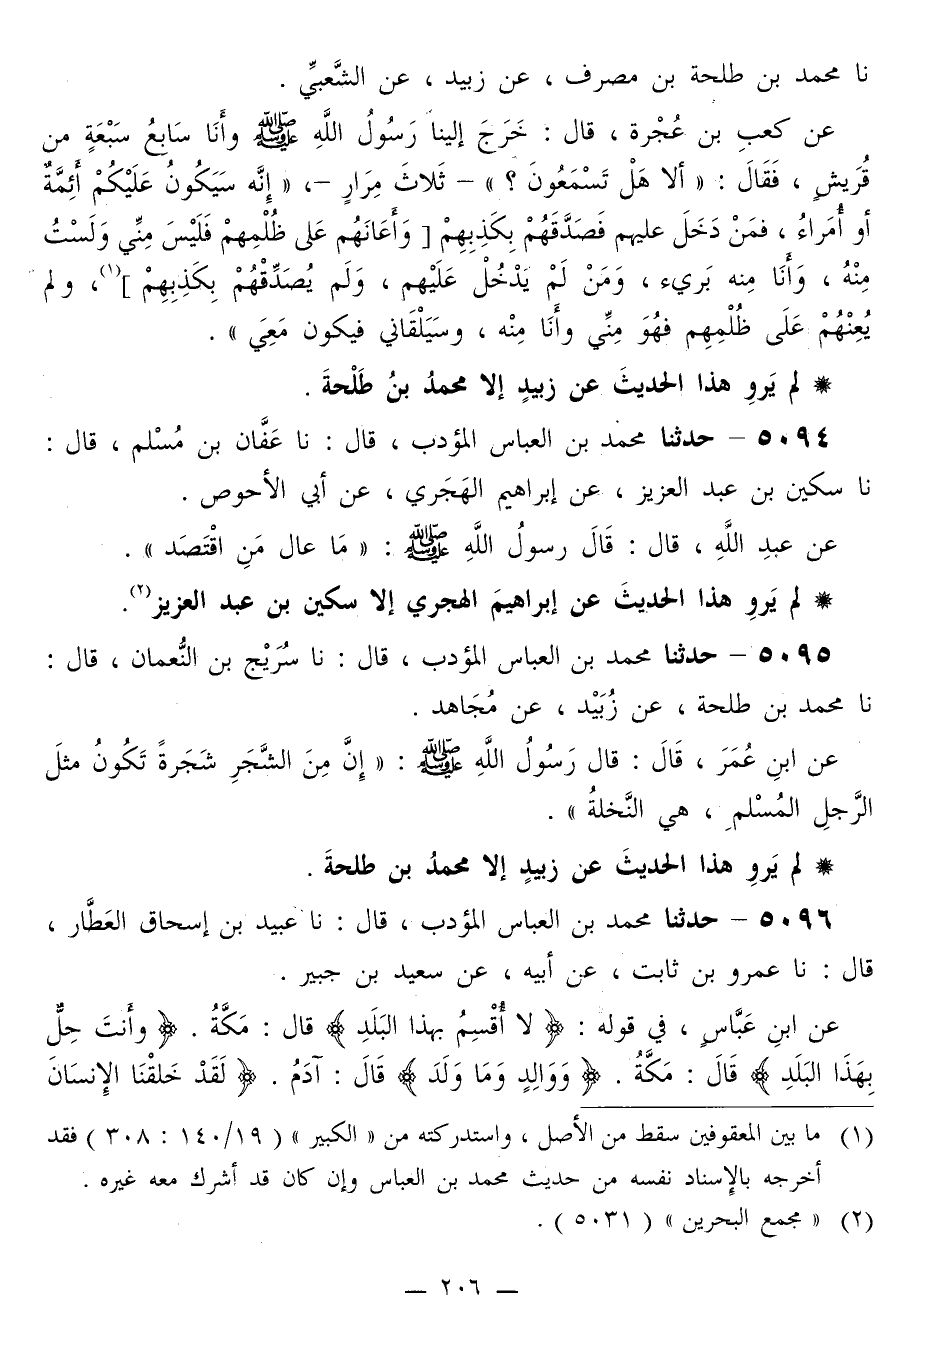 نا محمد بن طلحة بن مصرف ، عن زبيد ، عن الشَّعبيِّ .
عن كعب بن عُجْرة ، قال : خَرَجَ إلينا رَسُولُ اللَّهِ ﷺ وأَنَا سَابِعُ سَبْعَةٍ من
قُرِيشٍ ، فَقَالَ : « ألا هَلْ تَسْمَعُونَ ؟ » – ثَلاثَ مِرَارٍ –، « إِنَّه سَيَكُونُ عَلَيْكُمْ أَئِمَّةٌ
أو أُمَراءُ ، فمَنْ دَخَلَ عليهم فَصَدَّقَهُمْ بِكَذِبِهِمْ [ وَأَعَانَهُم عَلى ظُلْمِهمْ فَلَيْسَ مِنِّي وَلَسْتُ
مِنْهُ ، وَأَنَا منه بَريء ، وَمَنْ لَمْ يَدْخُلْ عَلَيْهم ، وَلَم يُصَدِّقْهُمْ بِكَذِبِهمْ ](١)، ولم
يُعِنْهُمْ عَلَى ظُلْمِهِم فهُوَ مِنِّي وأَنَا مِنْه ، وسيَلْقَاني فيكون مَعِيَ » .
* لم يَروِ هذا الحديثَ عن زبيدٍ إلا محمدُ بنُ طَلْحةَ .
٥٠٩٤ – حدثنا محمد بن العباس المؤدب ، قال : نا عَفَّان بن مُسْلم ، قال :
نا سكين بن عبد العزيز ، عن إبراهيم الهَجَري ، عن أبي الأحوص .
عن عبدِ اللَّهِ ، قال : قَالَ رسولُ اللَّهِ ﷺ : « مَا عال مَنِ اقْتَصَد » .
* لم يَروِ هذا الحديثَ عن إبراهيمَ الهجري إلا سكين بن عبد العزيز(٢).
٥٠٩٥ – حدثنا محمد بن العباس المؤدب ، قال : نا سُرَيْج بن النُّعمان ، قال :
نا محمد بن طلحة ، عن زُبَيْد ، عن مُجَاهد .
عن ابنِ عُمَرَ ، قَالَ : قال رَسُولُ اللَّهِ ﷺ : « إِنَّ مِنَ الشَّجَرِ شَجَرةً تَكُونُ مثلَ
الرَّجلِ المُسْلمِ ، هي النَّخلةُ » .
* لم يَروِ هذا الحديثَ عن زبيدٍ إلا محمدُ بن طلحةَ .
٥٠٩٦ – حدثنا محمد بن العباس المؤدب ، قال : نا عبيد بن إسحاق العَطَّار ،
قال : نا عمرو بن ثابت ، عن أبيه ، عن سعيد بن جبير .
عن ابنِ عَبَّاسٍ ، في قوله : ﴿ لا أُقْسِمُ بهذا البَلَدِ ﴾ قال : مَكَّةُ . ﴿ وأَنتَ حِلٌّ
بِهَذَا البَلَدِ ﴾ قَالَ : مَكَّةُ . ﴿ وَوَالِدٍ وَمَا وَلَدَ ﴾ قَالَ : آدَمُ . ﴿ لَقَدْ خَلقْنَا الإِنسَانَ
(١) ما بين المعقوفين سقط من الأصل ، واستدركته من « الكبير » ( ١٤٠/١٩ : ٣٠٨ ) فقد
أخرجه بالإسناد نفسه من حديث محمد بن العباس وإن كان قد أشرك معه غيره .
(٢) « مجمع البحرين » ( ٥٠٣١ ) .
— ٢٠٦ —